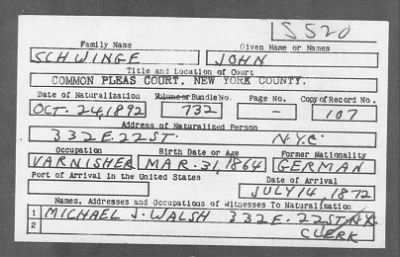 S520
Family Name Given Name or Names
SCHWINGE JOHN
Title and Location of Court
COMMON PLEAS COURT, NEW YORK COUNTY.
Date of Naturalization Volume or Bundle No. Page No. Copy of Record No.
OCT. 24, 1892 732 - 107
Address of Naturalized Person
332 E. 22 ST. N.Y.C.
Occupation Birth Date or Age Former Nationality
VARNISHER MAR. 31, 1864 GERMAN
Port of Arrival in the United States Date of Arrival
JULY 14, 1872
Names, Addresses and Occupations of Witnesses To Naturalization
1 MICHAEL J. WALSH 332 E. 22 ST. N.Y.C.
2 CLERK